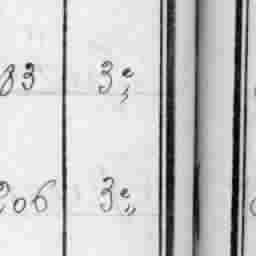 83 3e;
206 3e„